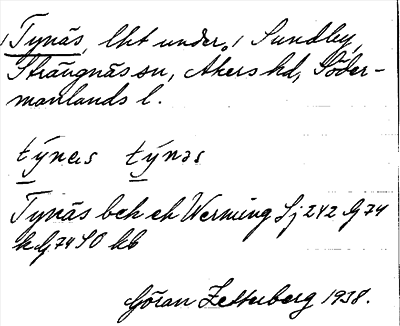 Tynäs, lht under Sundby,
Strängnäs sn, Åkers hd, Söder-
manlands l.
týnas týnəs
Tynäs bek ek Werming Sj 242 G 74
k G 74 SO kb
Göran Zetterberg 1938.